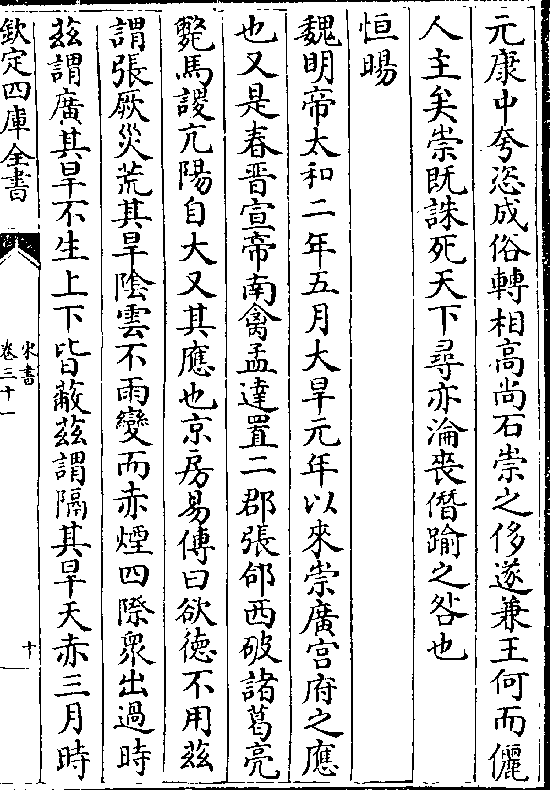 元康中夸恣成俗轉相高尚石崇之侈遂兼王何而儷
人主矣崇既誅死天下尋亦淪喪僭踰之咎也
恒暘
魏明帝太和二年五月大旱元年以來崇廣宫府之應
也又是春晋宣帝南禽孟達置二郡張郃西破諸葛亮
斃馬謖亢陽自大又其應也京房易傅曰欲徳不用兹
謂張厥災荒其旱隂雲不雨變而赤煙四際衆出過時
兹謂廣其旱不生上下皆蔽兹謂隔其旱天赤三月時
欽定四庫全書
宋書
卷三十一
十